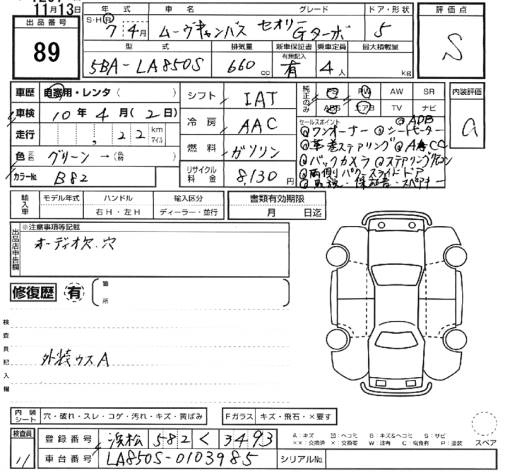 11月13日
出品番号 89
年式 車名 グレード ドア・形状 評価点
S・H・R 7年4月 ムーヴキャンバス セオリーGターボ 5 S
型式 排気量 新車保証書 有無記入 乗車定員 最大積載量
5BA-LA850S 660cc 有 4人 kg
車歴 自家用・レンタ( )
車検 10年4月(2日)
走行 , 22 km マイル
色 グリーン→
カラーNo. B82
シフト IAT
冷房 AAC
燃料 ガソリン
リサイクル料金 8,130円
純正のみ PS PW AW SR
ABS エアB TV ナビ
セールスポイント ◎ADB
◎ワンオーナー ◎シートヒーター
◎革巻ステアリング ◎ACC
◎バックカメラ ◎ステアリングリモコン
◎両側パワースライドドア
取説・保証書・スペアキー
内装評価 a
輸入車 モデル年式 ハンドル 輸入区分 書類有効期限
年 右H・左H ディーラー・並行 月 日迄
出品店申告欄 ※注意事項等記載
オーディオ欠.穴
修復歴 有 箇所
検査員記入欄
外装ウスA
内装シート 穴・破れ・スレ・コゲ・汚れ・キズ・黄ばみ Fガラス キズ・飛石・×要す
検査員 11
登録番号 浜松 582 く 3493
車台番号 LA850S-0103985 シリアルNo.
A:キズ U:ヘコミ B:キズ&ヘコミ S:サビ
××:交換済 ×:交換要 W:波有 C:腐食有 P:塗装
スペア